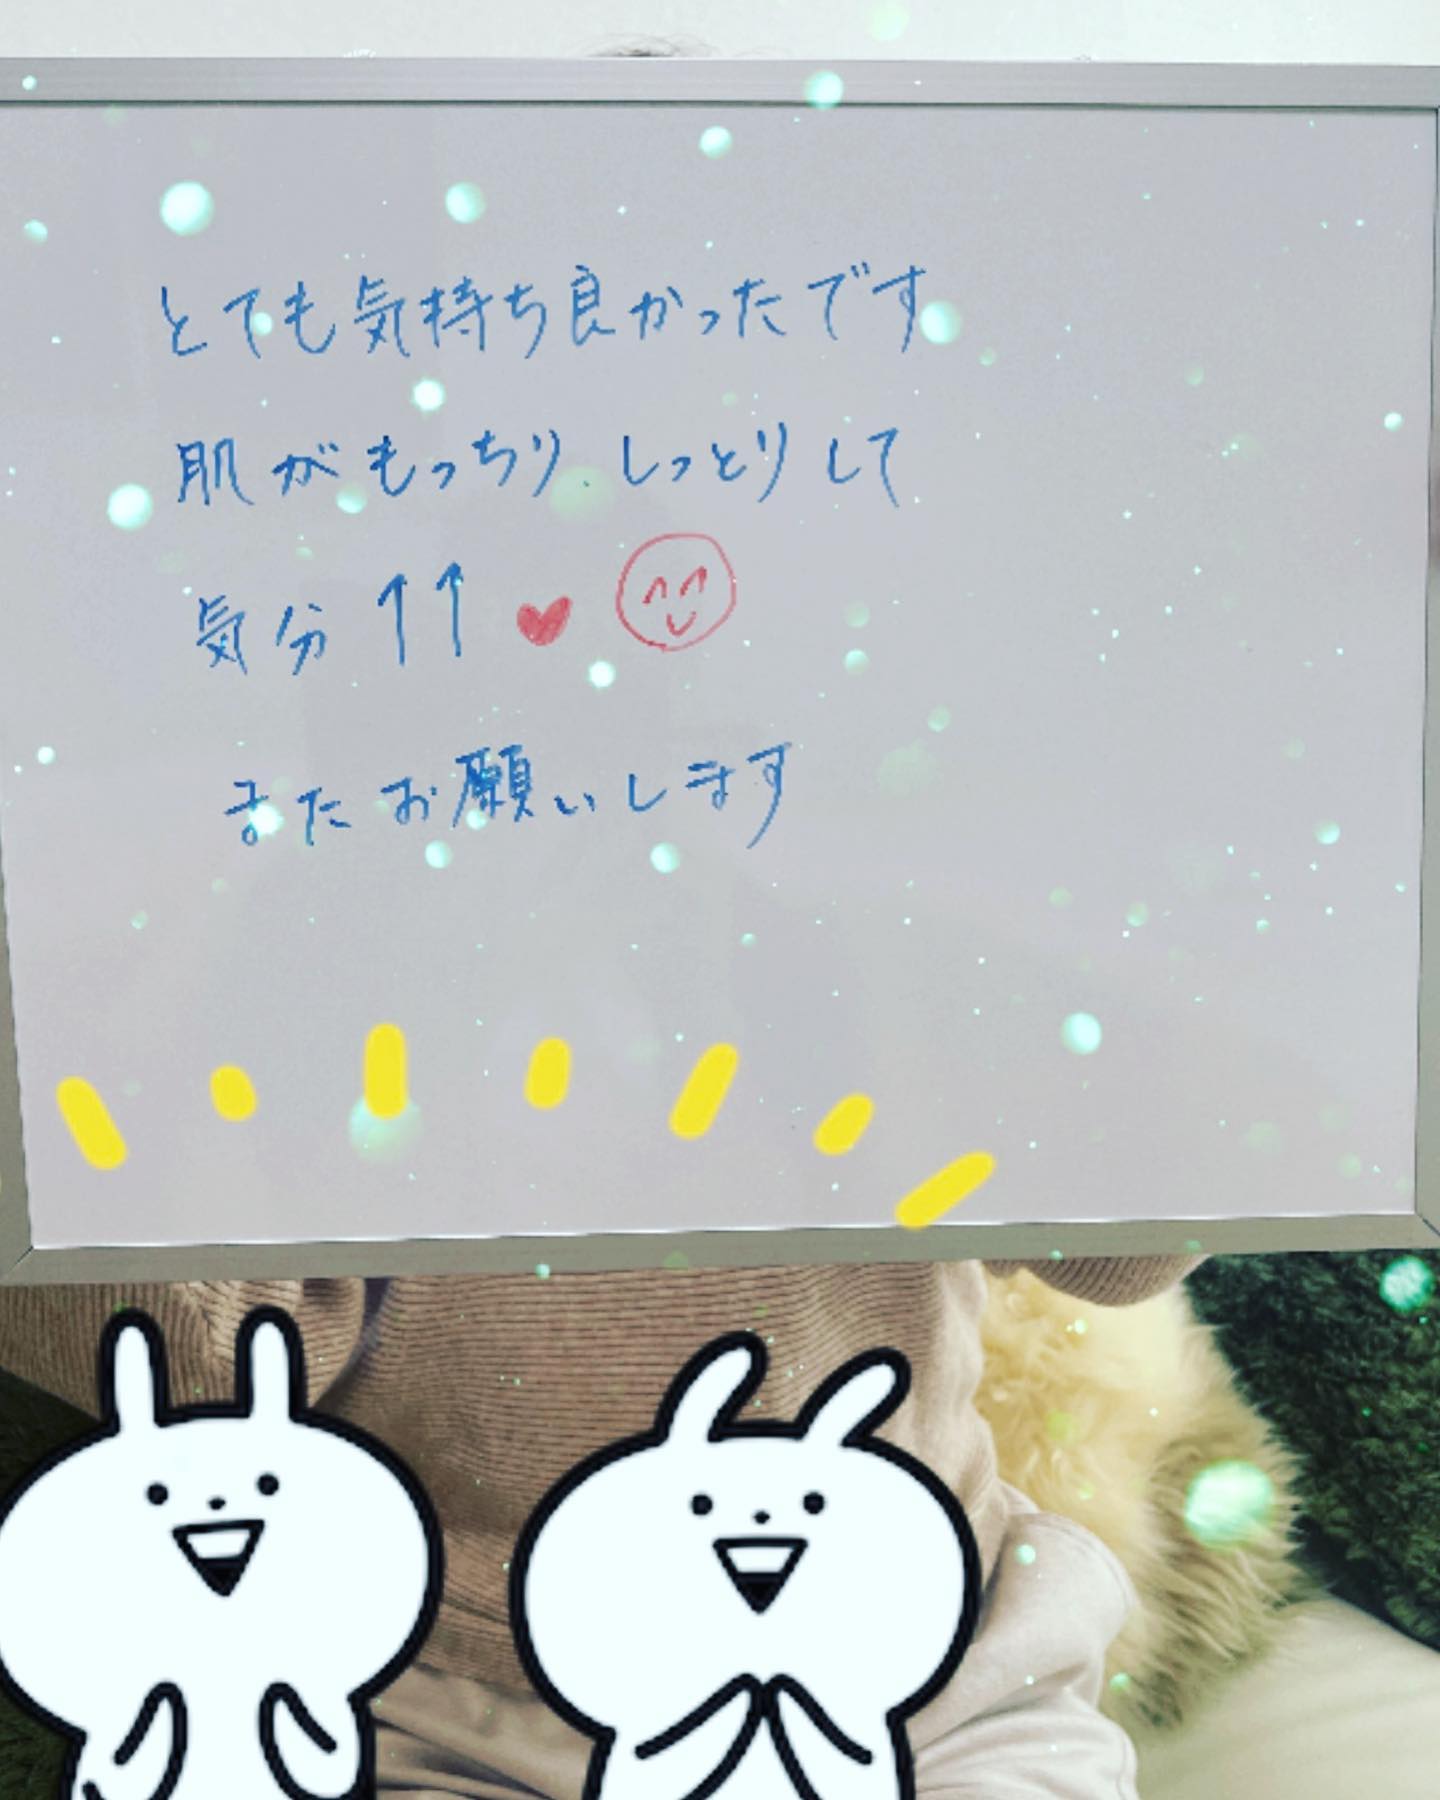 とても気持ち良かったです
肌がもっちり.しっとりして
気分↑↑♥
またお願いします